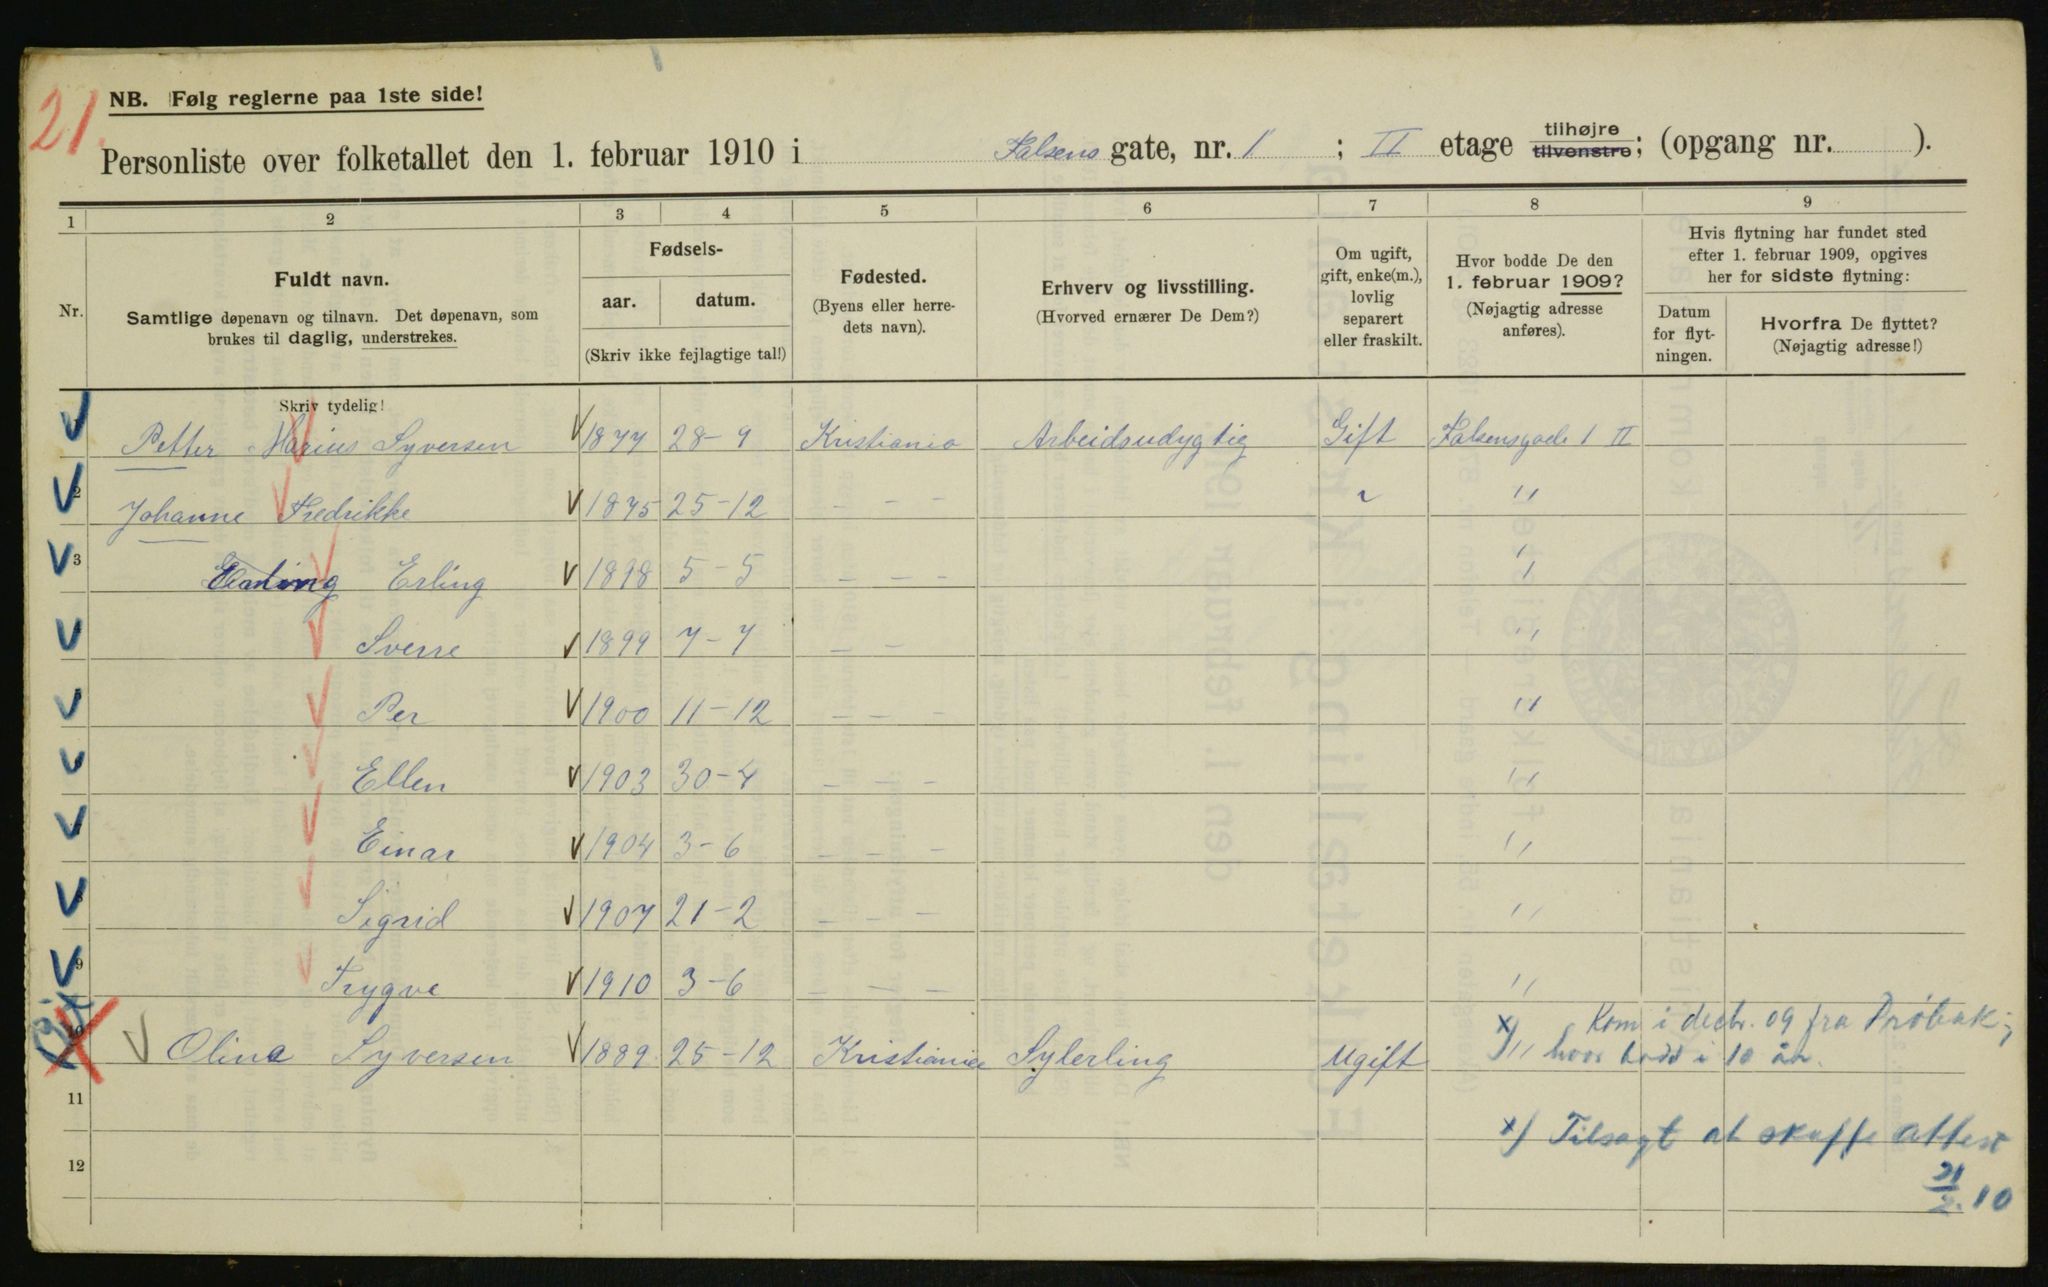 21.
NB. Følg reglerne paa 1ste side!
Personliste over folketallet den 1. februar 1910 i Falsens gate, nr. 1 ; II etage tilhøjre tilvenstre; (opgang nr. ).
1 2 3 4 5 6 7 8 9
Nr.
Fuldt navn.
Samtlige døpenavn og tilnavn. Det døpenavn, som
brukes til daglig, understrekes.
Fødsels-
aar. datum.
(Skriv ikke fejlagtige tal!)
Fødested.
(Byens eller herre-
dets navn).
Erhverv og livsstilling.
(Hvorved ernærer De Dem?)
Om ugift,
gift, enke(m.),
lovlig
separert
eller fraskilt.
Hvor bodde De den
1. februar 1909?
(Nøjagtig adresse
anføres).
Hvis flytning har fundet sted
efter 1. februar 1909, opgives
her for sidste flytning:
Datum
for flyt-
ningen.
Hvorfra De flyttet?
(Nøjagtig adresse!)
Skriv tydelig!
Petter Marius Syversen 1877 28-9 Kristiania Arbeidsudygtig Gift Falsensgade 1 II
2 Johanne Fredrikke 1875 25-12 — — — " "
3 Erling 1898 5-5 — — — "
Sverre 1899 7-7 — — — "
Per 1900 11-12 — — — "
Ellen 1903 30-4 — — — "
Einar 1904 3-6 — — — "
Sigrid 1907 21-2 — — — "
9 Trygve 1910 3-6 — — — "
10 Oline Syversen 1889 25-12 Kristiania Sylerling Ugift "
x) Kom i decbr. 09 fra Drøbak;
hvor bodd i 10 år.
11
x) Tilsagt at skaffe attest
12
21/2.10